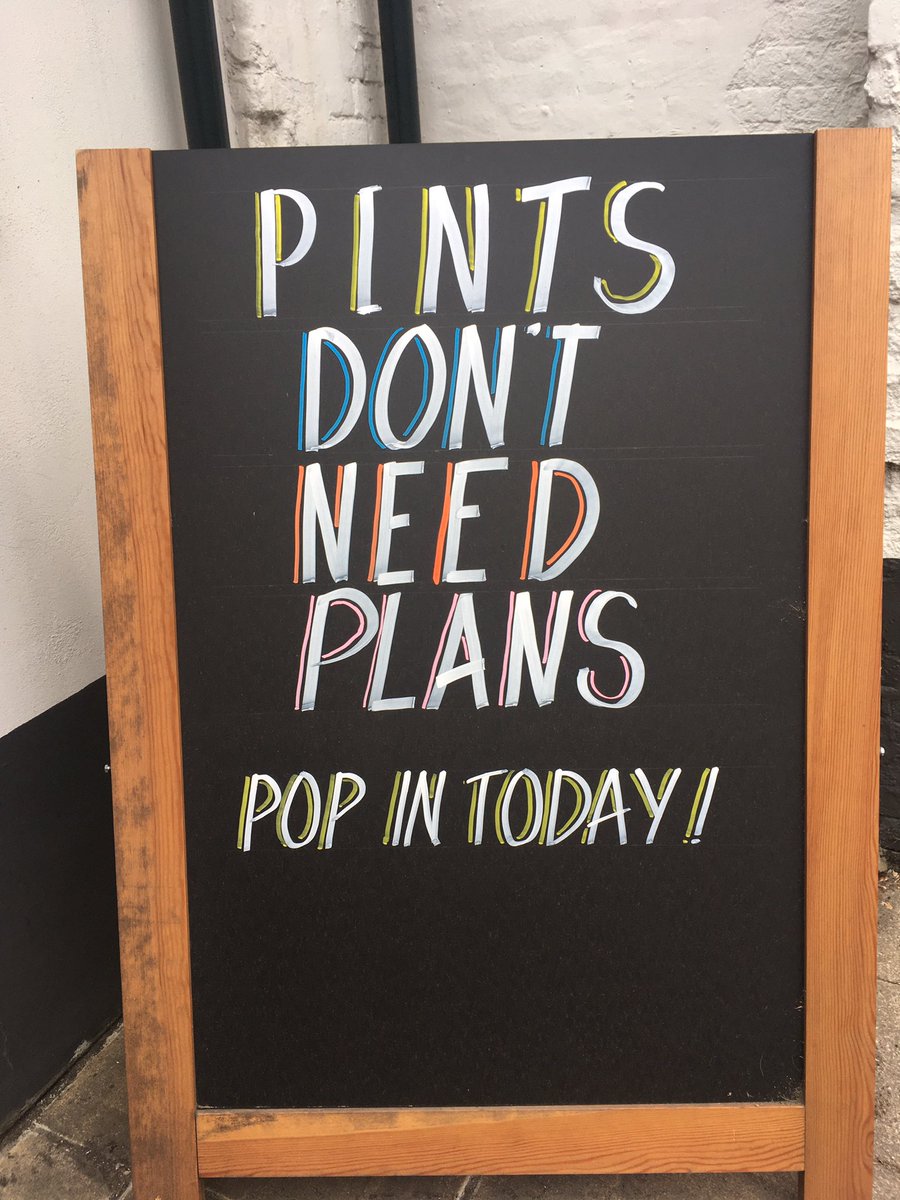 PINTS
DON'T
NEED
PLANS
POP IN TODAY!